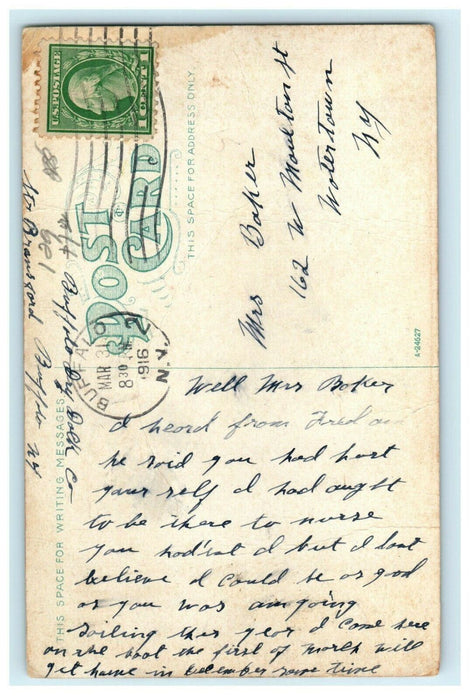 U.S. POSTAGE
1 CENT 1
POST CARD
THIS SPACE FOR ADDRESS ONLY
BUFFALO
MAR 30
830
1916
N.Y.
2
Mrs Baker
162 W Moulton st
Watertown
Ny
A-24627
THIS SPACE FOR WRITING MESSAGES
Well Mrs Baker
I heard from Fred an
he said you had hurt
your self I had aught
to be there to nurse
you had'nt I but I dont
believe I could be as good
as you was am going
sailing this year I came here
on the boat the first of march will
get home in december some time
Buffalo Dry Dock C
Buffalo Ny